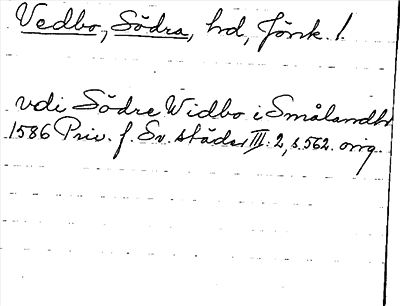 Vedbo, Södra, hd, Jönk. l.
vdi Södre Widbo i Smålandh
1586 Priv. f. Sv. städer III: 2, s. 562. orig.